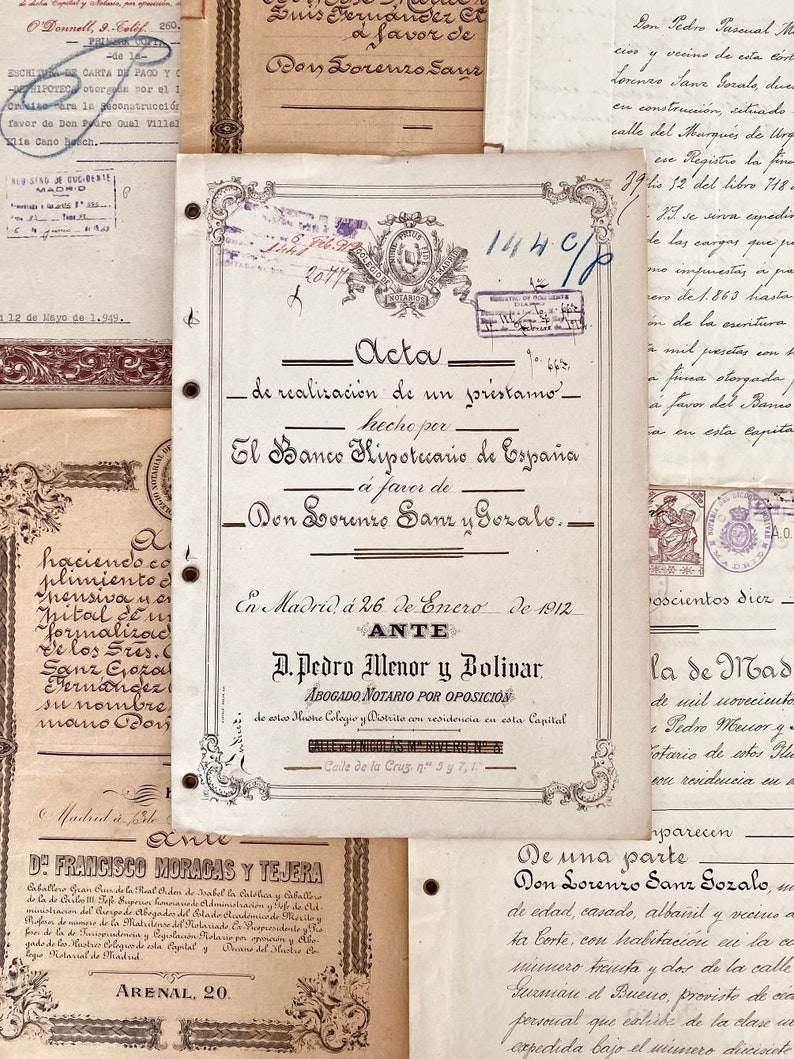 de dicha Capital y Notario, por oposición, de
O'Donnell, 9. Teléf. 260.
PRIMERA COPIA
-de la-
ESCRITURA DE CARTA DE PAGO Y C
DE HIPOTECA otorgada por el I
Crédito para la Reconstrucción
favor de Don Pedro Gual Villal
Elia Cano Rosch.
REGISTRO DE OCCIDENTE
MADRID
12 de Mayo de 1.949.
Luis Fernández
á favor de
Don Lorenzo Sanz
Don Pedro Pascual M
cios y vecino de esta córt
Lorenzo Sanz Gozalo, due
en construcción, situado
calle del Marques de Urq
ese Registro la finca
lio 52 del libro 718 d
V.S. se sirva expedir
de las cargas que p
como impuestas á pa
ero de 1.863 hasta
de la escritura
ta mil pesetas con h
finca otorgada p
á favor del Banco
a en esta capita
COLEGIO DE NOTARIOS DE MADRID
NIHIL PRIUS FIDE
2077
144 c/p
REGISTRO DE OCCIDENTE
Acta
de realización de un préstamo
hecho por
El Banco Hipotecario de España
á favor de
Don Lorenzo Sanz y Gozalo.
En Madrid á 26 de Enero de 1912
ANTE
D. Pedro Menor y Bolivar,
ABOGADO NOTARIO POR OPOSICIÓN
de estos Ilustre Colegio y Distrito con residencia en esta Capital
CALLE DE D. NICOLÁS Mª RIVERO Nº 8
Calle de la Cruz, n.os 5 y 7, 1.º
haciendo co
plimiento d
pensiva y e
pital de un
formalizad
de los Sres.
Sanz Goza
Fernández
su nombre
mano Don
Madrid á 13 de
Ante
Dn. FRANCISCO MORAGAS Y TEJERA
Caballero Gran Cruz de la Real Orden de Isabel la Católica y Caballero
de la de Carlos III: Jefe Superior honorario de Administración y Jefe de Ad-
ministración del Cuerpo de Abogados del Estado: Académico de Mérito y
Profesor de número de la Matritense del Notariado. Ex-Vicepresidente y Pro-
fesor de la de Jurisprudencia y Legislación: Notario por oposición y Abo-
gado de los Ilustres Colegios de esta Capital y Decano del Ilustre Co-
legio Notarial de Madrid.
ARENAL, 20.
MADRID
A.O.
oscientos diez
la de Mad
de mil novecientos
Pedro Menor y
Notario de estos Ilu
con residencia en
mparecen
De una parte
Don Lorenzo Sanz Gozalo, m
de edad, casado, albañil y vecino d
ta Corte, con habitación en la ca
número treinta y dos de la calle
Guzmán el Bueno, provisto de céd
personal que exhibe de la clase un
expedida bajo el número diecisiete